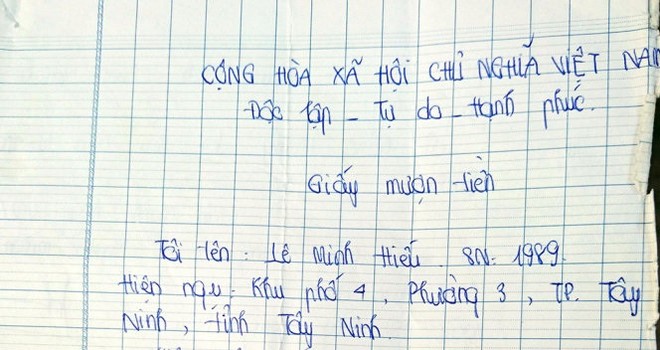 CỘNG HÒA XÃ HỘI CHỦ NGHĨA VIỆT NAM
Độc lập - Tự do - Hạnh phúc.
Giấy mượn tiền
Tôi tên: Lê Minh Hiếu. SN: 1989.
Hiện ngụ: Khu phố 4, Phường 3, TP. Tây
Ninh, tỉnh Tây Ninh.